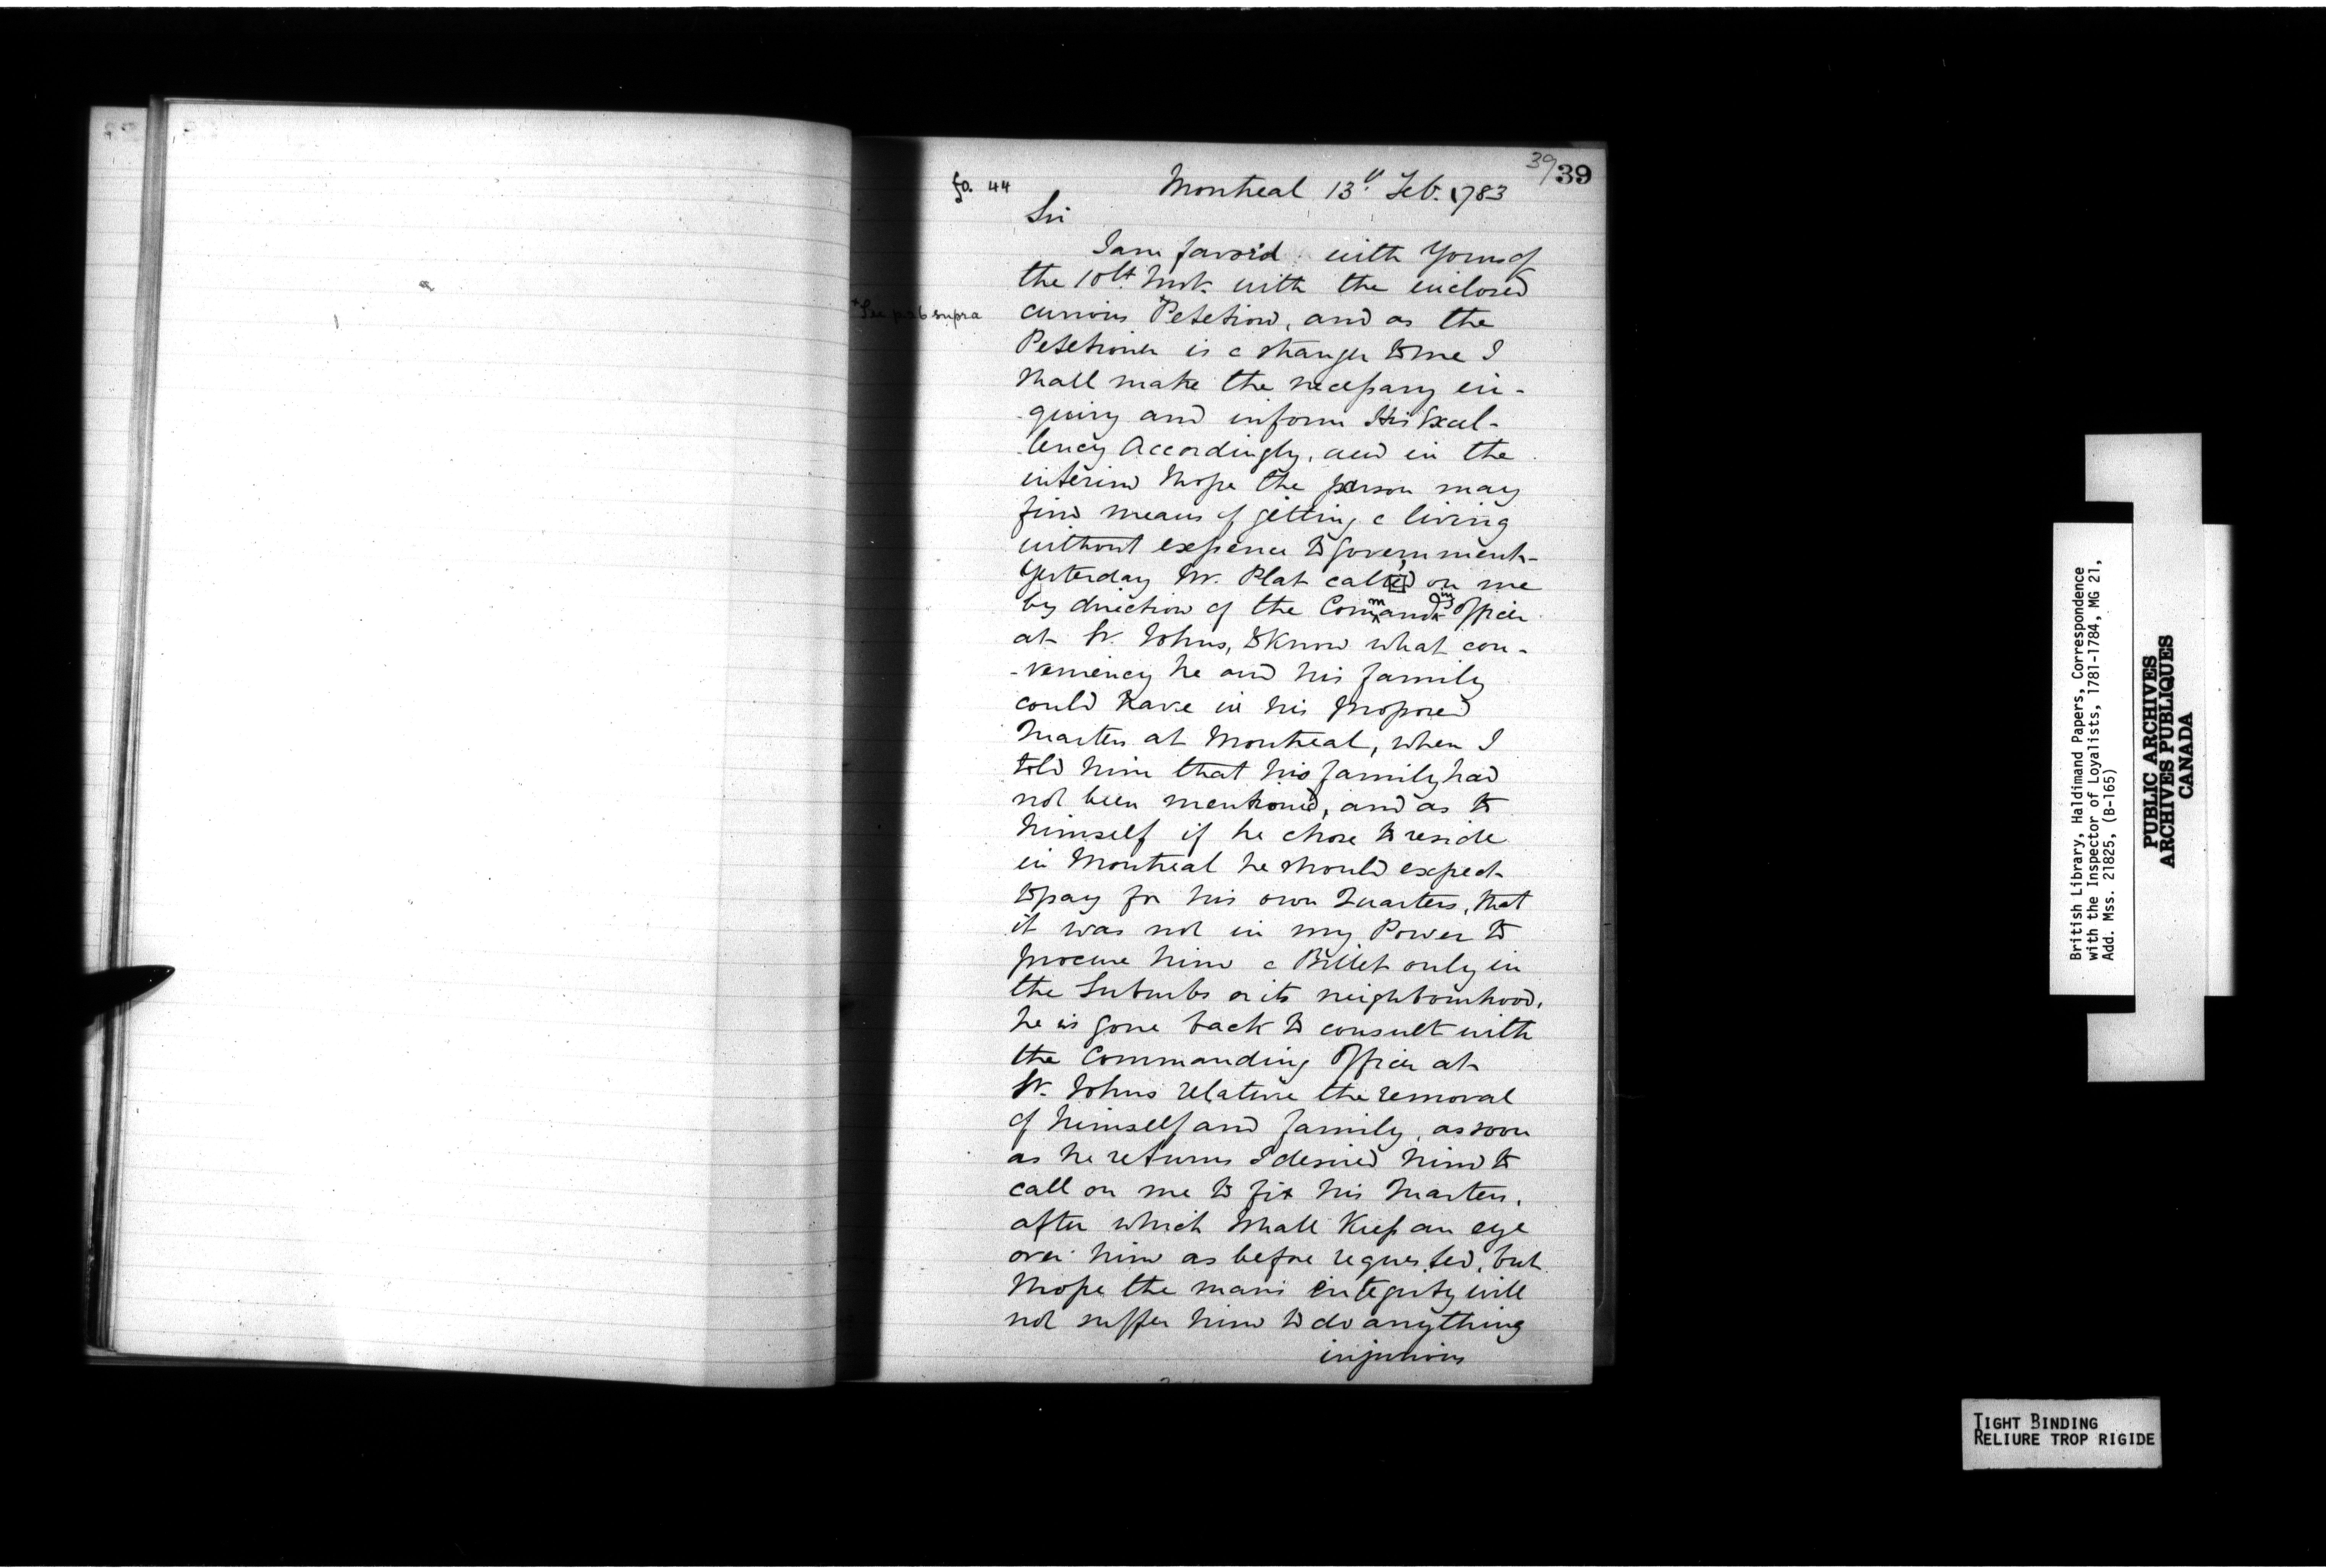 39/39
fo. 44
Montreal 13th Feb. 1783
Sir
I am favor'd with Yours of
the 10th Inst. with the inclosed
*See p. 26 supra
curious *Petetion, and as the
Petetioner is a stranger to me I
shall make the necessary en-
-quiry and inform His Excel-
-lency Accordingly, and in the
interim I hope the person may
find means of getting a living
without expence to Government-
Yesterday Mr. Plat called on me
by direction of the Commanding Officer
at St. Johns, to know what con-
-veniency he and his family
could have in his proposed
Quarters at Montreal, when I
told him that his family had
not been mentioned, and as to
himself if he chose to reside
in Montreal he should expect
to pay for his own Quarters, that
it was not in my Power to
procure him a Billet only in
the Suburbs or its neighbourhood,
he is gone back to consult with
the Commanding Officer at
St. Johns relative the removal
of himself and family, as soon
as he returns I desired him to
call on me to fix his Quarters,
after which I shall keep an eye
over him as before requested, but
I hope the mans integrity will
not suffer him to do anything
injurious
British Library, Haldimand Papers, Correspondence
with the Inspector of Loyalists, 1781-1784, MG 21,
Add. Mss. 21825, (B-165)
PUBLIC ARCHIVES
ARCHIVES PUBLIQUES
CANADA
TIGHT BINDING
RELIURE TROP RIGIDE